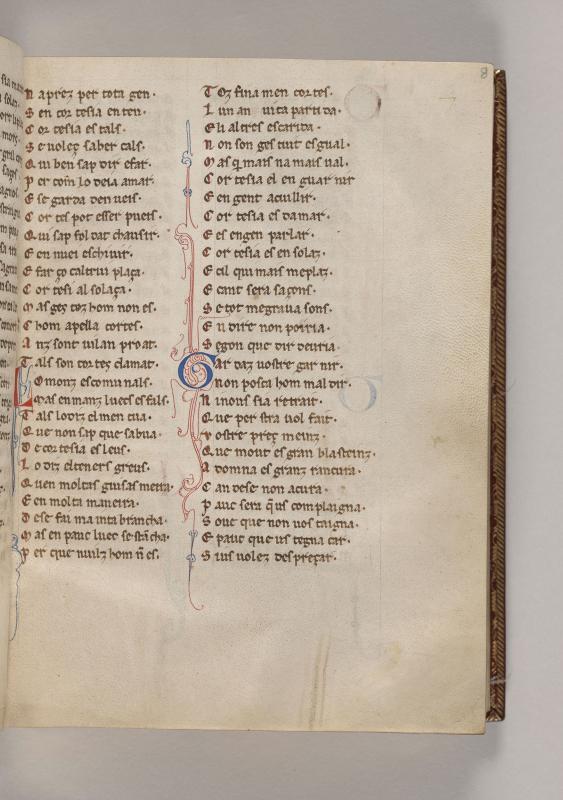 8
N a prez per tota gen.
S en cor tesia en ten.
C or tesia es tals.
S e volez saber cals.
Q ui ben sap dir e far.
P er com lo deia amar.
E se garda d en ueis.
C or tes pot esser pueis.
Q ui sap fol dat chausir.
E en nuei eschivir.
E far ço c altrui plaça.
C or tesi al solaça.
M as ges toz hom non es.
C hom apella cortes.
A nz sont uilan proat.
T als son cortez clamat.
L o monz es comunals.
M as en manz luecs es fals.
T als lodiz el men tua.
Q ue non sap que sabua.
D e cor tesia es leus.
L o diz el teners greus.
Q u en moltas guisas meira.
E en molta maneira.
D e se fai ma inta brancha.
M as en pauc luec se stancha.
P er que nuilz hom n es.
T oz fina men cortes.
L un an uita partida.
E li altres escarida.
N on son ges tuit esgual.
M as q mais na mais ual.
C or tesia el en guarnir
E en gent acuillir.
C or tesia es d amar.
E es en gen parlar.
C or tesia es en solaz.
E cil qui mais me plaz.
E cant sera saçons.
S e tot me grava sons.
E n dire non poiria.
S egon que dir deuria.
G ar daz uostre gar nir.
Q non posca hom mal dir.
N i nous sia retrait.
Q ue per stra uol fait.
V ostre prez meinz.
Q ue mout es gran blasteinz.
A domna es granz rancura.
C an de se non a cura.
P auc sera q us complaigna.
S oue que non uos taigna.
E pauc que us tegna car.
S i us volez despreçar.